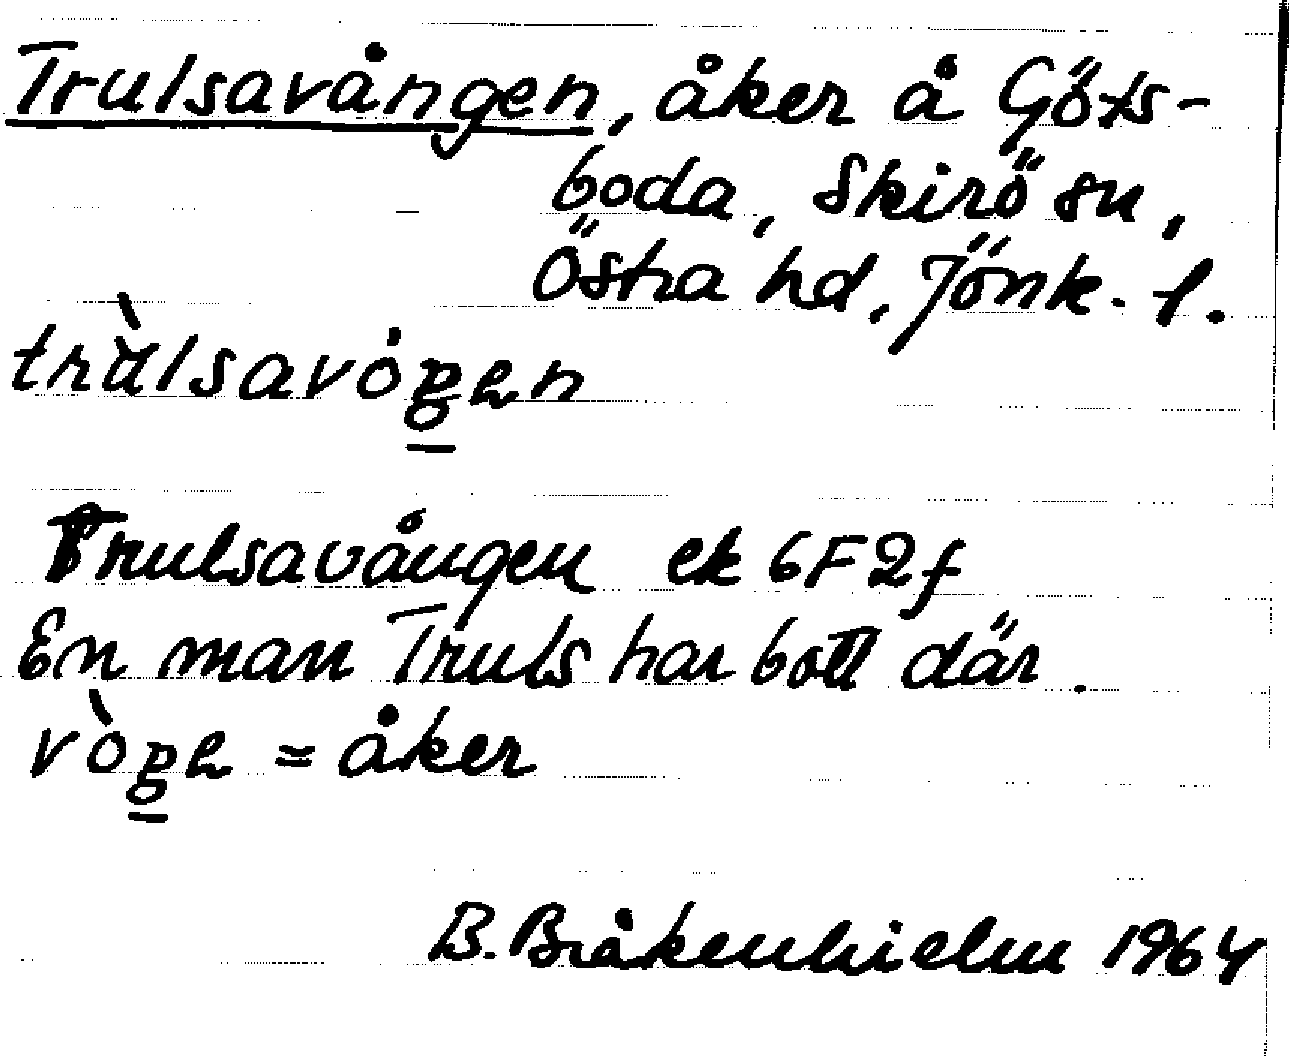 Trulsavången, åker å Göts-
boda, Skirö sn,
Östra hd, Jönk. l.
trùlsavȯgen
Trulsavången ek 6F2f
En man Truls har bott där.
vòge = åker
B. Bråkenhielm 1964